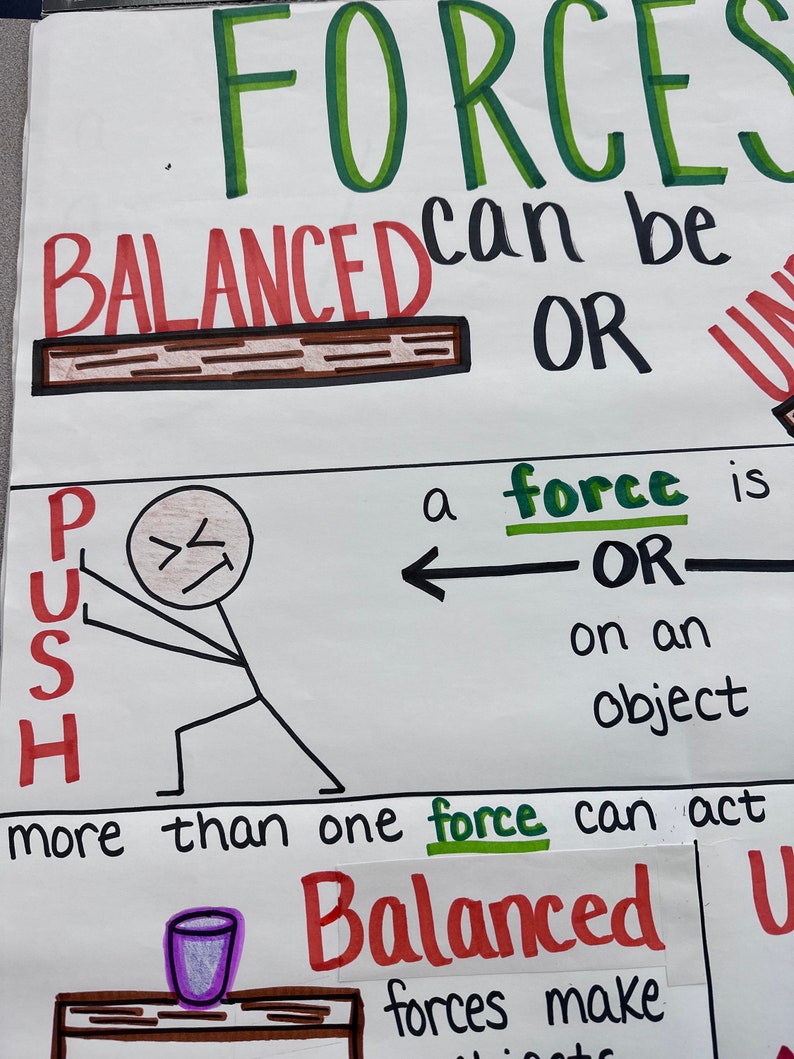 FORCES
can be
BALANCED
OR
PUSH
a force is
OR
on an
object
more than one force can act
Balanced
forces make